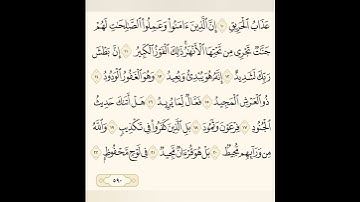 عَذَابُ الْحَرِيقِ ۝١٠ إِنَّ الَّذِينَ ءَامَنُوا۟ وَعَمِلُوا۟ الصَّـٰلِحَـٰتِ لَهُمْ
جَنَّـٰتٌ تَجْرِى مِن تَحْتِهَا الْأَنْهَـٰرُ ۚ ذَٰلِكَ الْفَوْزُ الْكَبِيرُ ۝١١ إِنَّ بَطْشَ
رَبِّكَ لَشَدِيدٌ ۝١٢ إِنَّهُۥ هُوَ يُبْدِئُ وَيُعِيدُ ۝١٣ وَهُوَ الْغَفُورُ الْوَدُودُ ۝١٤
ذُو الْعَرْشِ الْمَجِيدُ ۝١٥ فَعَّالٌ لِّمَا يُرِيدُ ۝١٦ هَلْ أَتَىٰكَ حَدِيثُ
الْجُنُودِ ۝١٧ فِرْعَوْنَ وَثَمُودَ ۝١٨ بَلِ الَّذِينَ كَفَرُوا۟ فِى تَكْذِيبٍ ۝١٩ وَاللَّهُ
مِن وَرَآئِهِم مُّحِيطٌۢ ۝٢٠ بَلْ هُوَ قُرْءَانٌ مَّجِيدٌ ۝٢١ فِى لَوْحٍ مَّحْفُوظٍۭ ۝٢٢
٥٩٠